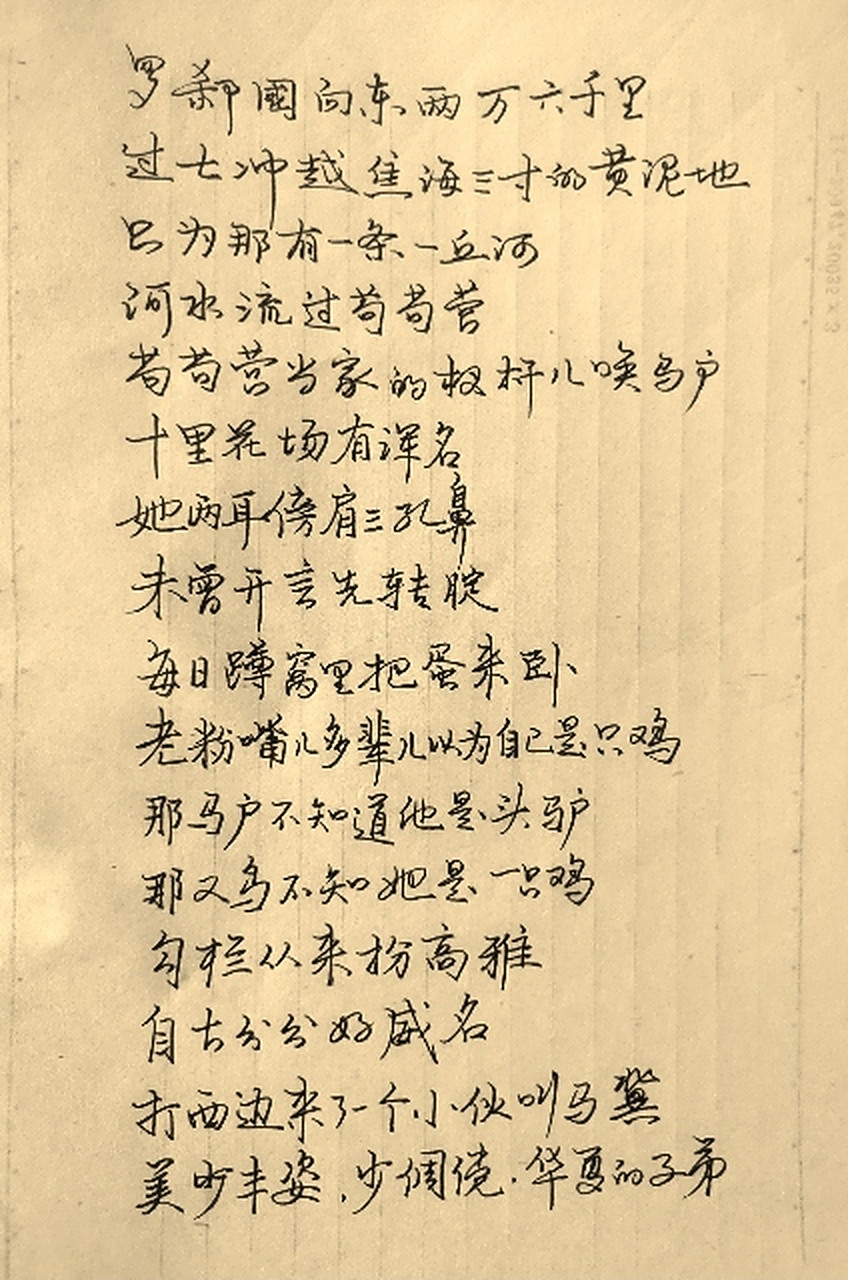 罗刹國向东两万六千里
过七冲越焦海三寸的黄泥地
只为那有一条一丘河
河水流过苟苟营
苟苟营当家的杈杆儿唤马户
十里花场有诨名
她两耳傍肩三孔鼻
未曾开言先转腚
每日蹲窝里把蛋来卧
老粉嘴儿多辈儿以为自己是只鸡
那马户不知道他是头驴
那又鸟不知她是一只鸡
勾栏从来扮高雅
自古公公好威名
打西边来了一个小伙叫马骥
美吵丰姿,少倜傥.华夏的子弟